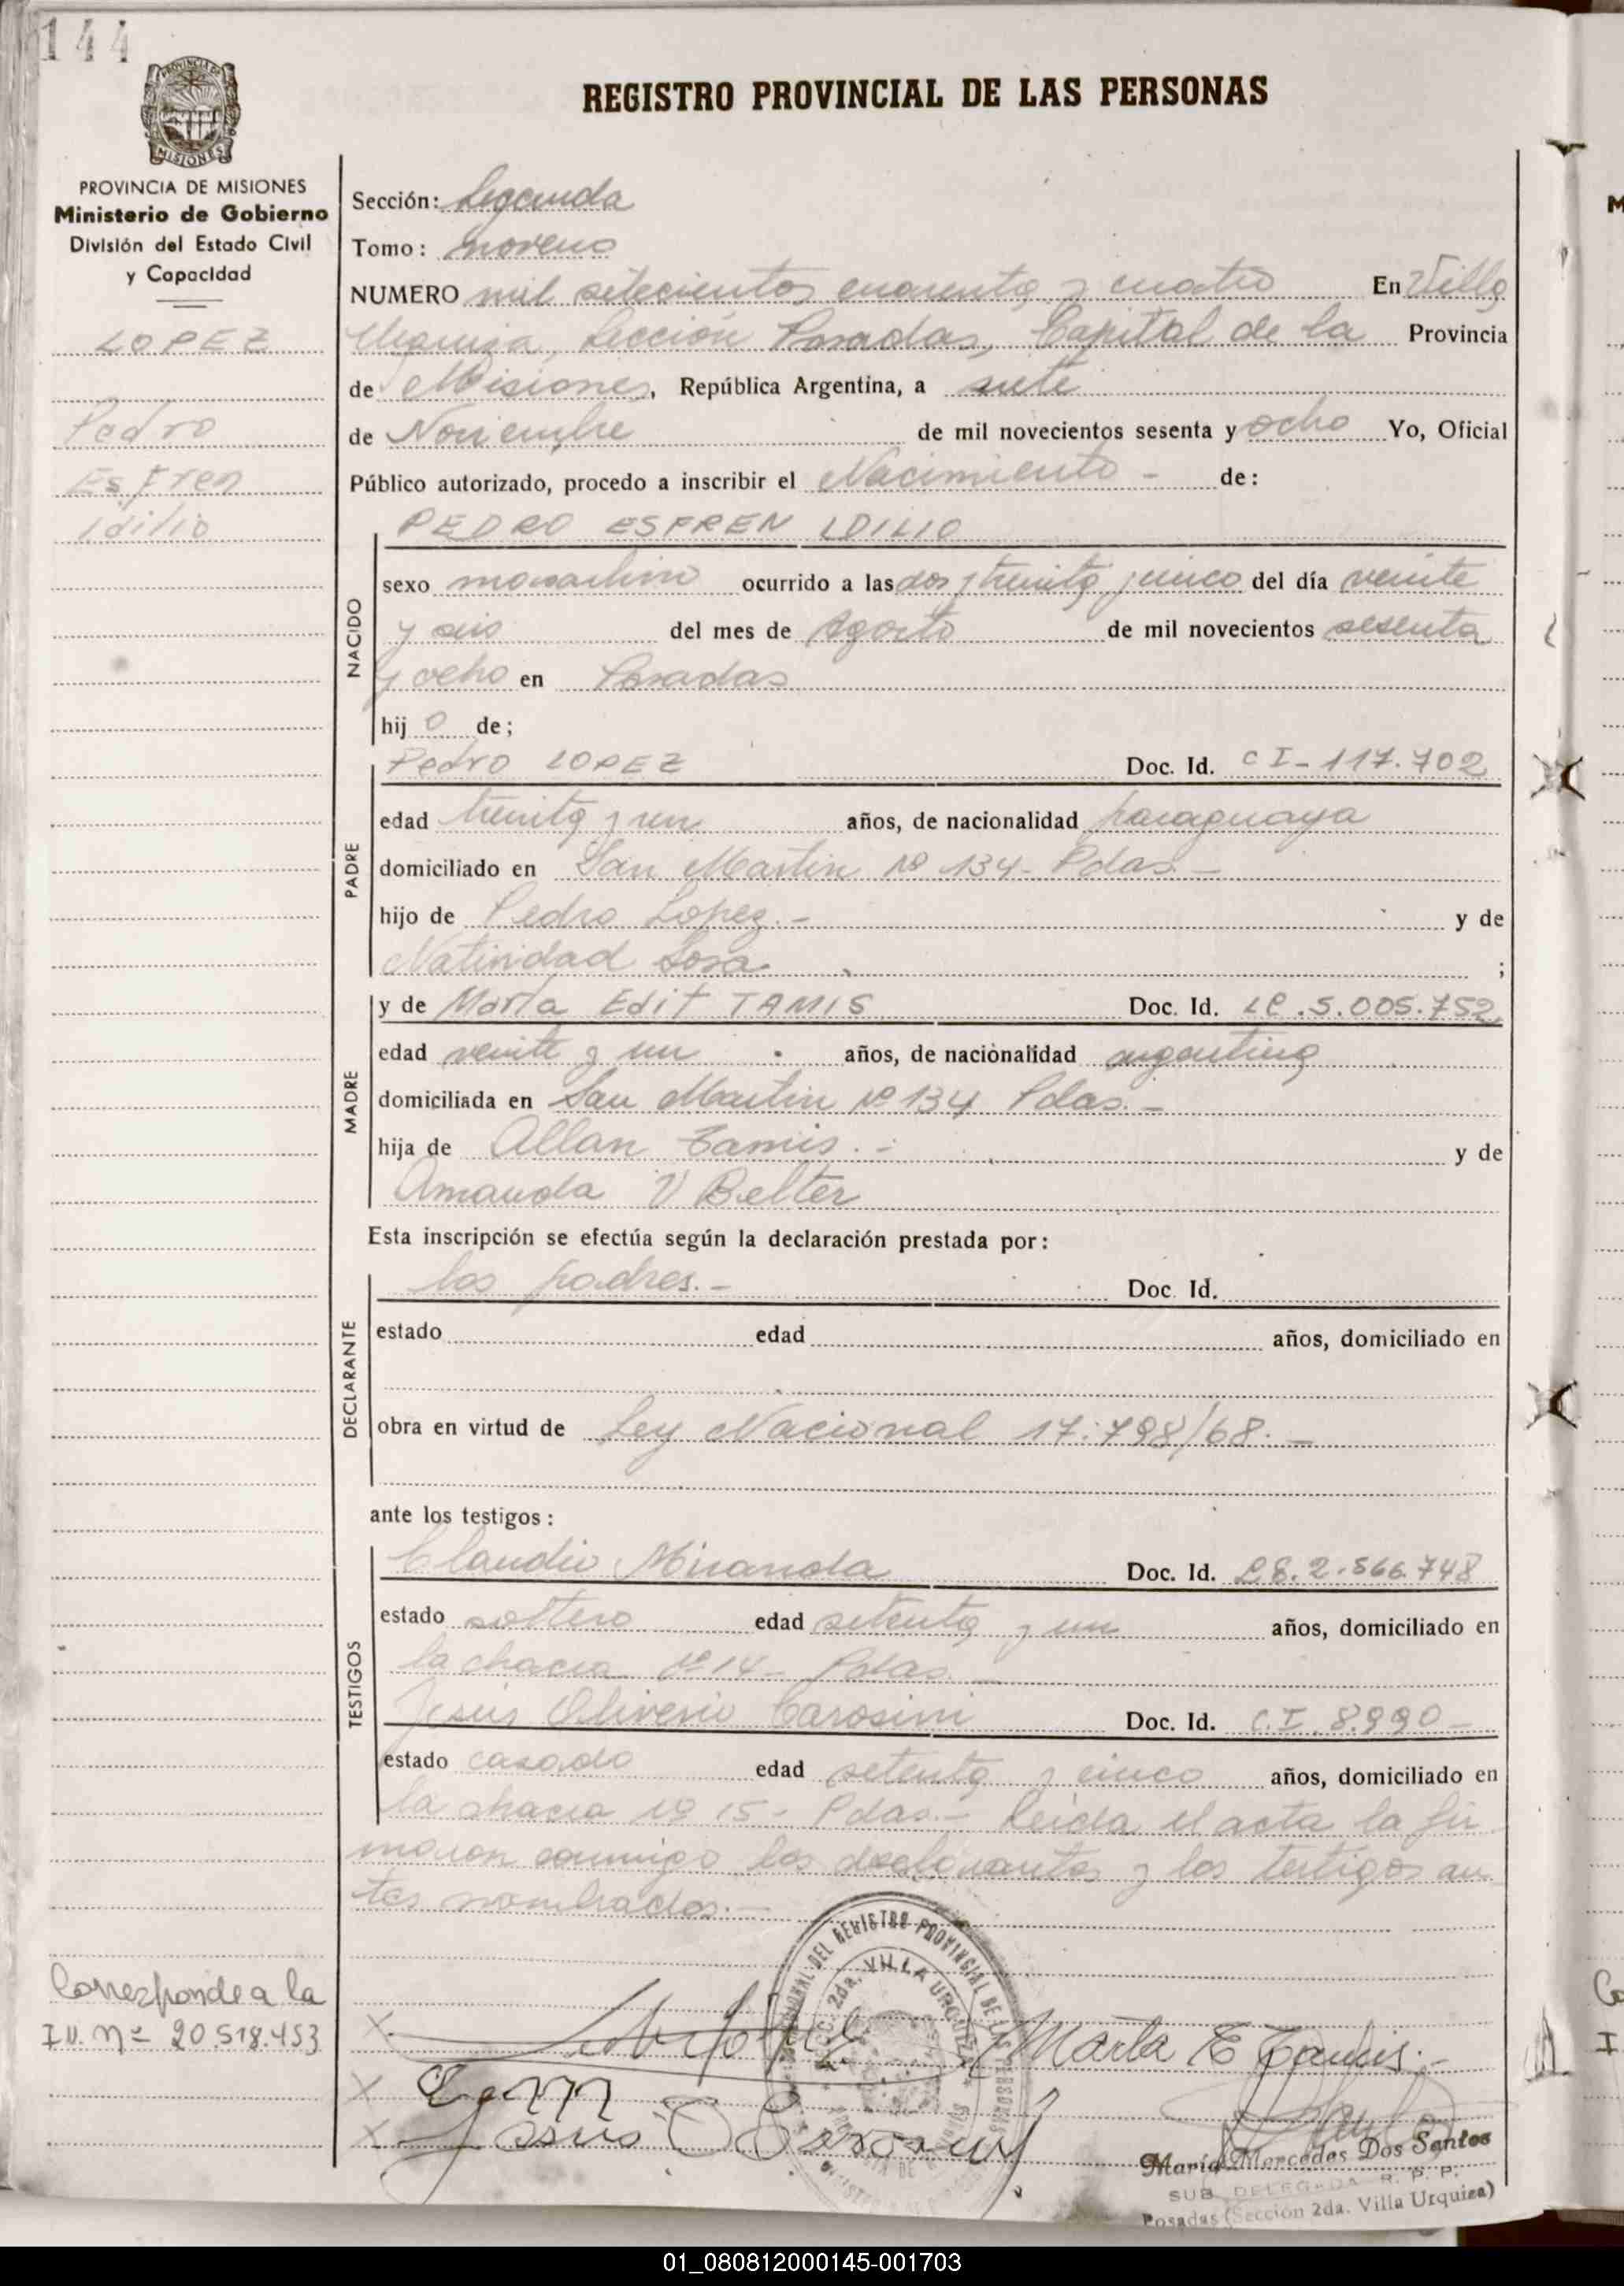 144
PROVINCIA DE MISIONES
Ministerio de Gobierno
División del Estado Civil
y Capacidad
LOPEZ
Pedro
Esfren
Idilio
REGISTRO PROVINCIAL DE LAS PERSONAS
Sección: Segunda
Tomo: noveno
NUMERO mil setecientos cuarenta y cuatro En Villa
Urquiza, Sección Posadas, Capital de la Provincia
de Misiones, República Argentina, a siete
de Noviembre de mil novecientos sesenta y ocho Yo, Oficial
Público autorizado, procedo a inscribir el Nacimiento - de:
PEDRO ESFREN IDILIO
NACIDO
sexo masculino ocurrido a las dos y treinta y cinco del día veinte
y seis del mes de Agosto de mil novecientos sesenta
y ocho en Posadas
hijo de;
PADRE
Pedro LOPEZ Doc. Id. C I - 117.702
edad treinta y un años, de nacionalidad paraguaya
domiciliado en San Martin Nº 134 - Pdas. -
hijo de Pedro Lopez. - y de
Natividad Sosa ;
MADRE
y de Marta Edit TAMIS Doc. Id. LC. 5.005.752
edad veinte y un años, de nacionalidad argentina
domiciliada en San Martin Nº 134 Pdas. -
hija de Allan Tamis. - y de
Amanda V Belter
Esta inscripción se efectúa según la declaración prestada por:
DECLARANTE
los padres. - Doc. Id.
estado edad años, domiciliado en
obra en virtud de Ley Nacional 17.798/68. -
ante los testigos:
TESTIGOS
Claudio Miranda Doc. Id. L.E. 2.566.748
estado soltero edad setenta y un años, domiciliado en
la chacra Nº 14 - Pdas. -
Jesús Oliverio Carosini Doc. Id. C.I. 8.990 -
estado casado edad setenta y cinco años, domiciliado en
la chacra Nº 15 - Pdas. - Leida el acta la fir
maron conmigo los declarantes y los testigos an
tes nombrados. -
Corresponde a la
I.U. Nº 20.518.453
DEL REGISTRO PROVINCIAL DE LAS PERSONAS
SECC. 2da. VILLA URQUIZA
X
Marta E Tamis. -
X
X Jesus O Carosini
María Mercedes Dos Santos
SUB DELEGADA R. P. P.
Posadas (Sección 2da. Villa Urquiza)
01_080812000145-001703